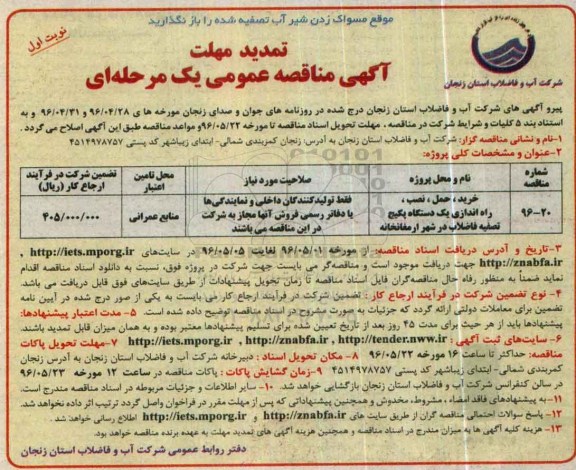 موقع مسواک زدن شیر آب تصفیه شده را باز نگذارید
نوبت اول
شرکت آب و فاضلاب استان زنجان
تمدید مهلت
آگهی مناقصه عمومی یک مرحله‌ای
پیرو آگهی های شرکت آب و فاضلاب استان زنجان درج شده در روزنامه های جوان و صدای زنجان مورخه ها ی ۹۶/۰۴/۲۸ و ۹۶/۰۴/۳۱ و به
استناد بند ۵ کلیات و شرایط شرکت در مناقصه ، مهلت تحویل اسناد مناقصه تا مورخه ۹۶/۰۵/۲۲ و مواعد مناقصه طبق این آگهی اصلاح می گردد .
۱-نام و نشانی مناقصه گزار: شرکت آب و فاضلاب استان زنجان به آدرس: زنجان کمربندی شمالی- ابتدای زیباشهر کد پستی ۴۵۱۴۹۷۸۷۵۷
۲-عنوان و مشخصات کلی پروژه:
شماره مناقصه
نام و محل پروژه
صلاحیت مورد نیاز
محل تامین اعتبار
تضمین شرکت در فرآیند ارجاع کار (ریال)
۹۶-۲۰
خرید ، حمل ، نصب ،
راه اندازی یک دستگاه پکیج
تصفیه فاضلاب در شهر ارمغانخانه
فقط تولیدکنندگان داخلی و نمایندگی‌ها
یا دفاتر رسمی فروش آنها مجاز به شرکت
در این مناقصه می باشند
منابع عمرانی
۴۰۵/۰۰۰/۰۰۰
۳-تاریخ و آدرس دریافت اسناد مناقصه: از مورخه ۹۶/۰۵/۰۱ لغایت ۹۶/۰۵/۰۵ در سایت‌های http://iets.mporg.ir ,
http://znabfa.ir جهت دریافت موجود است و مناقصه‌گر می بایست جهت شرکت در پروژه فوق، نسبت به دانلود اسناد مناقصه اقدام
نماید ضمناً به منظور رفاه حال مناقصه‌گران فایل اسناد مناقصه تا زمان تحویل پیشنهادات از طریق سایت‌های فوق قابل دریافت می باشد.
۴- نوع تضمین شرکت در فرآیند ارجاع کار : تضمین شرکت در فرآیند ارجاع کار می بایست به یکی از صور درج شده در آیین نامه
تضمین برای معاملات دولتی ارائه گردد که جزئیات به صورت مشروح در اسناد مناقصه توضیح داده شده است. ۵-مدت اعتبار پیشنهادها:
پیشنهادها باید از هر حیث برای مدت ۴۵ روز بعد از تاریخ تعیین شده برای تسلیم پیشنهادها معتبر بوده و به همان میزان قابل تمدید باشند.
۶- سایت‌های ثبت آگهی: http://iets.mporg.ir , http://znabfa.ir , http://tender.nww.ir ۷-مهلت تحویل پاکات
مناقصه: حداکثر تا ساعت ۱۶ مورخه ۹۶/۰۵/۲۲ ۸- مکان تحویل اسناد : دبیرخانه شرکت آب و فاضلاب استان زنجان به آدرس زنجان
کمربندی شمالی- ابتدای زیباشهر کد پستی ۴۵۱۴۹۷۸۷۵۷ ۹-زمان گشایش پاکات : پاکات مناقصه در ساعت ۱۲ مورخه ۹۶/۰۵/۲۳
در سالن کنفرانس شرکت آب و فاضلاب استان زنجان بازگشایی خواهد شد. ۱۰- سایر اطلاعات و جزئیات مربوطه در اسناد مناقصه مندرج است.
۱۱- به پیشنهادهای فاقد امضاء ، مشروط، مخدوش و همچنین پیشنهاداتی که پس از مهلت مقرر در فراخوان واصل گردد ترتیب اثر داده نخواهد شد.
۱۲- پاسخ سوالات احتمالی مناقصه گران از طریق سایت های http://znabfa.ir و http://iets.mporg.ir اطلاع رسانی خواهد شد .
۱۳- هزینه کلیه آگهی ها به میزان مندرج در اسناد مناقصه و همچنین هزینه آگهی های تمدید مهلت به عهده برنده مناقصه خواهد بود.
دفتر روابط عمومی شرکت آب و فاضلاب استان زنجان